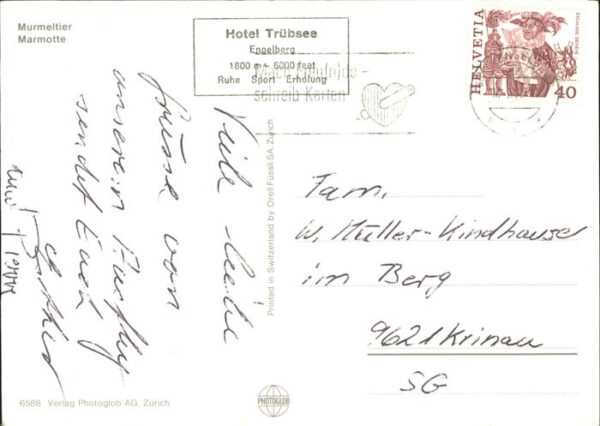 Murmeltier
Marmotte
Hotel Trübsee
Engelberg
1800 m - 6000 feet
Ruhe Sport Erholung
schreib Karten
HELVETIA
ESCALADE GENÈVE
40
Viele liebe
Grüsse von
unserem Ausflug
sendet Euch
Printed in Switzerland by Orell Füssli SA. Zürich
Fam.
W. Müller-Kindhauser
im Berg
9621 Krinau
SG
6588 Verlag Photoglob AG. Zürich
PHOTOGLOB